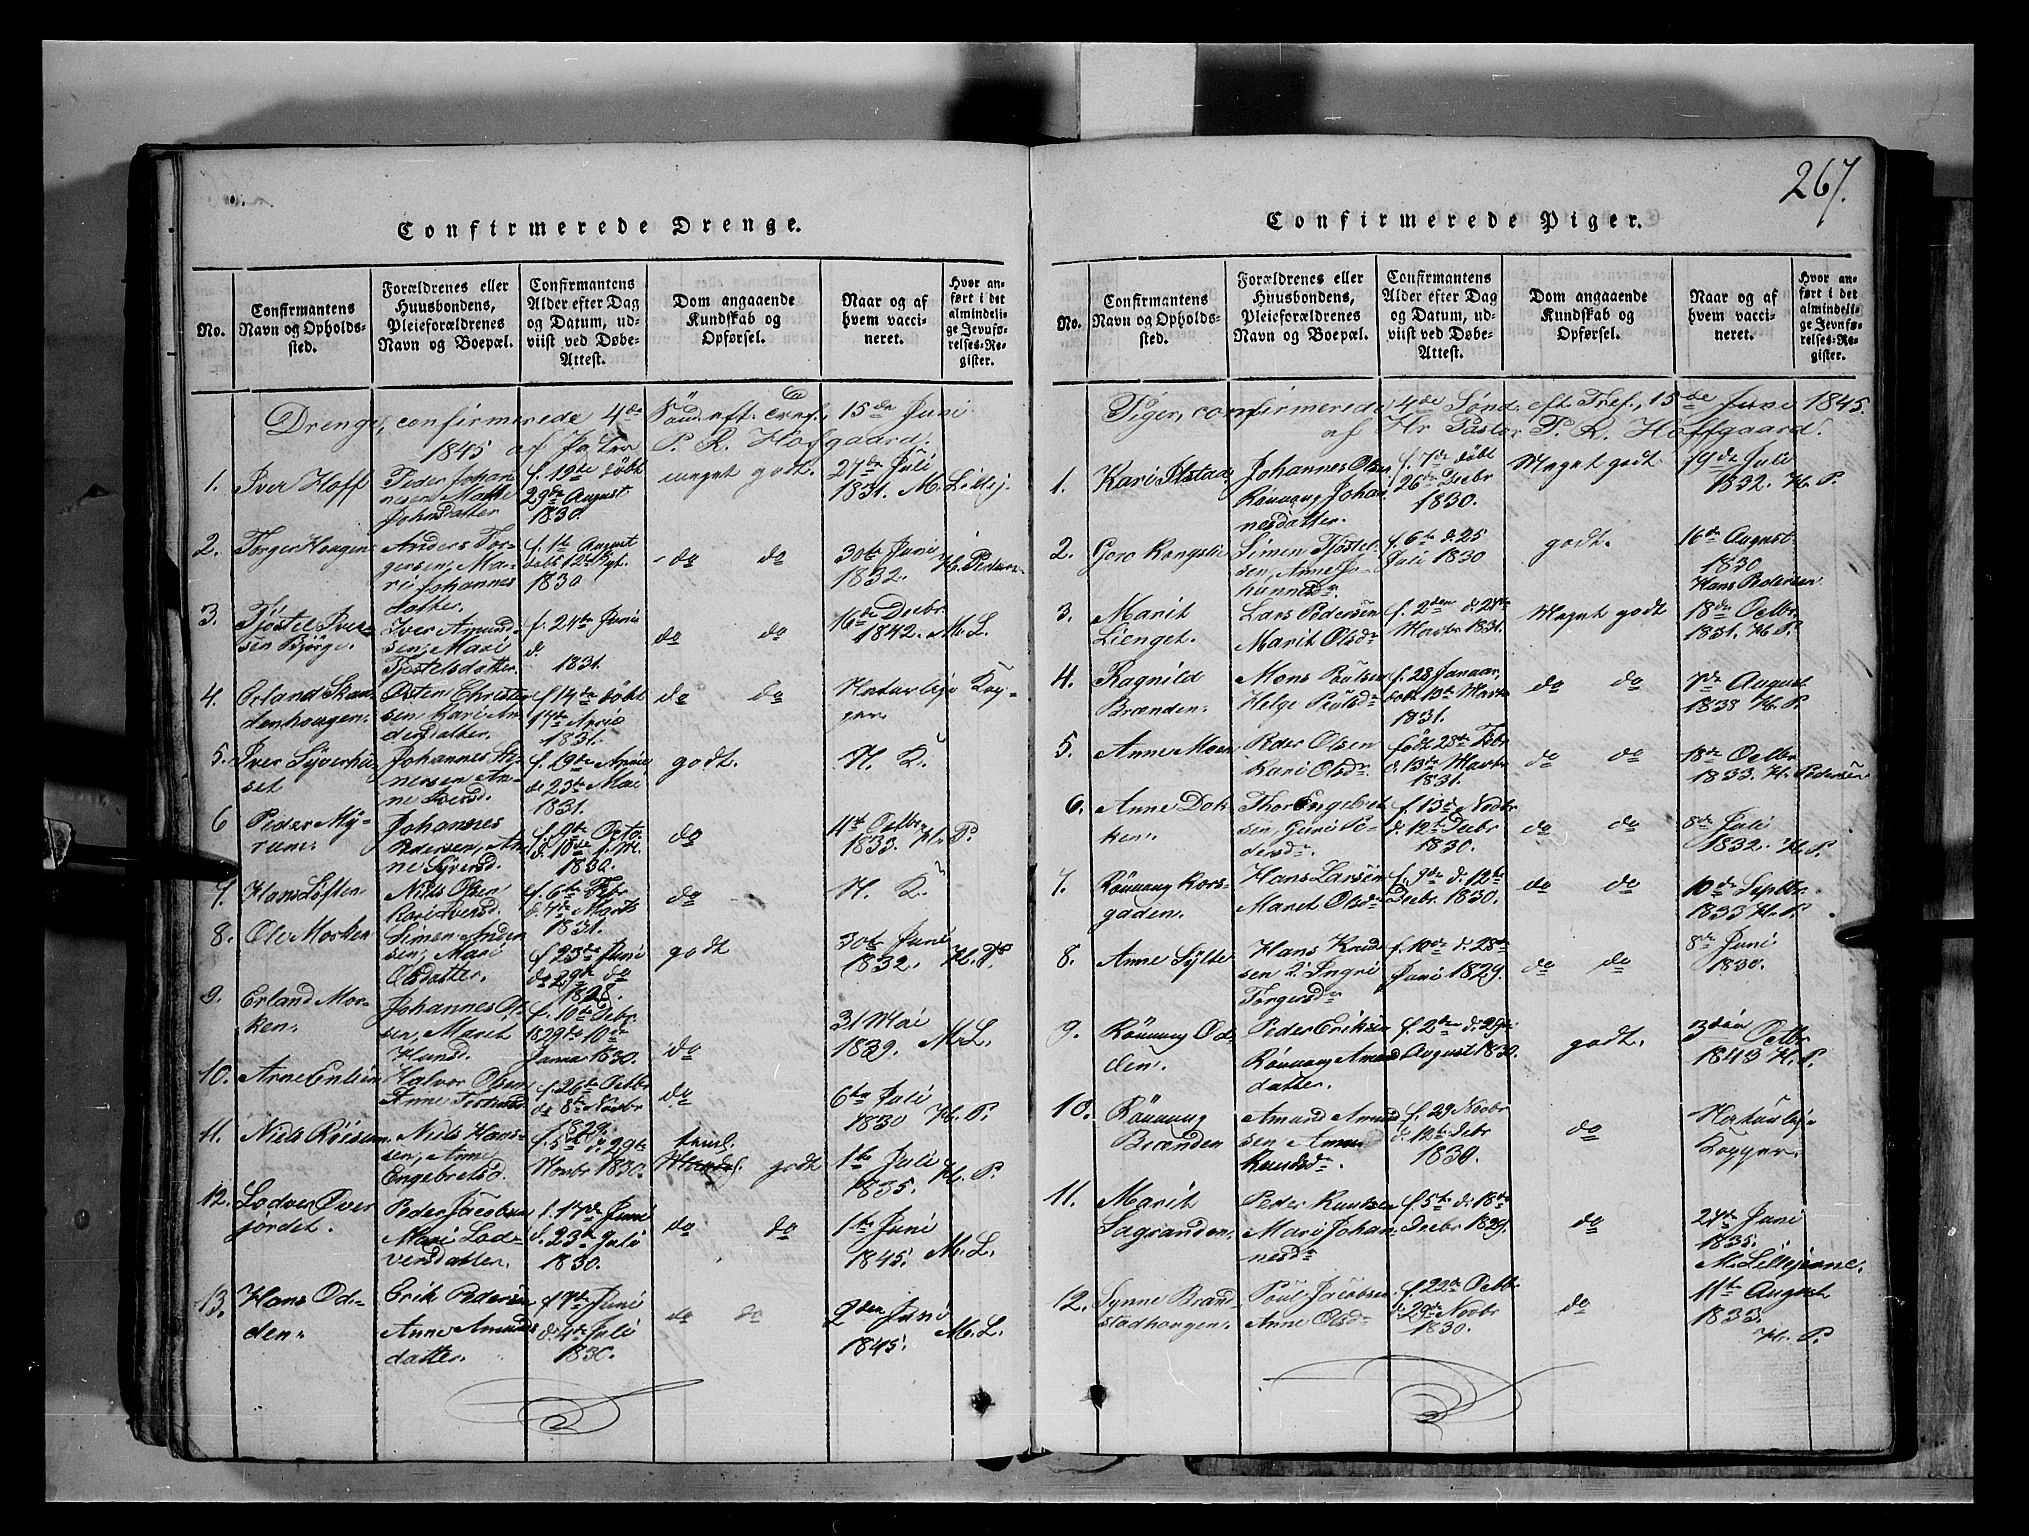 267.
Confirmerede Drenge.
No.
Confirmantens
Navn og Opholds-
sted.
Forældrenes eller
Huusbondens,
Pleieforældrenes
Navn og Boepæl.
Confirmantens
Alder efter Dag
og Datum, ud-
viist ved Døbe-
Attest.
Dom angaaende
Kundskab og
Opførsel.
Naar og af
hvem vacci-
neret.
Hvor an-
ført i det
almindeli-
ge Jevnfø-
relses-Re-
gister.
Drenge, confirmerede 4de Sønd. eft. Tref., 15de Juni
1845 af P. R. Hofgaard.
1. Iver Hoff
Peder Johan
nesen Mari
Johnsdatter
f. 19de döbt
29de August
1830.
meget godt.
24de Juli
1831. M. Lillej.
2. Torger Hougen
Anders Tor-
gersen, Ma-
ri Johannes
datter.
f. 1te August
döbt 12te Spt.
1830
do do
30te Juni
1832. H. Peders.
3. Tjöstel Iver-
sen Björge.
Iver Amund-
sen, Mari
Tjöstelsdatter.
f. 24te Juni
d.
1831.
do do
16te Decbr
1842. M. L.
4. Erland Skau
denhougen.
Östen Christen
sen Kari An
dersdatter.
f. 14de döbt
17de April
1831.
do do
Naturlije Kop-
per.
5. Iver Syverhu
set
Johannes
nersen An-
ne Iversd.
f. 29de April
d. 23de Mai
1831.
godt.
N. K.
6 Peder My-
rum.
Johannes
Pedersen, An
ne Syversd.
f. 9de Octo.
d. 10de
1830.
do
11te Octbr
1833. H. P.
7. Hans Loften
Niels Olsen
Kari Iversd.
f. 6te Febr
d. 7de Marts
1831.
do
N. K.
8. Ole Morken
Simen Ander
sen, Mari
Olsdatter.
f. 23de Juni
d. 29de do
1828.
godt
30te Juni
1832. H. P.
9. Erland Mor-
ken.
Johannes Ol-
sen, Marit
Hansd.
f. 10de Decbr
1829 d. 10de
Januar 1830.
do
31 Mai
1839. M. L.
10. Arne Enlien
Halvor Olsen
Anne
f. 26de Octbr
d. 8de Novbr
1829.
do
6te Juli
1830 H. P.
11. Niels Röisum
Niels Hans-
sen, Anne
Engebretsd.
f. 5te d. 29de
Novbr 1830.
teml.
godt
1te Juli
1835. H. P.
12. Lodver Över
jordet.
Peder Jacobsen
Mari Lod-
versdatter.
f. 17de Juni
d. 23de Juli
1830.
do do
1te Juni
1845. M. L.
13. Hans Od-
den.
Erik Pedersen
Anne Amunds
datter.
f. 7de Juni
d. 4de Juli
1830.
do do
2den Juni
1845. M. L.
Confirmerede Piger.
No.
Confirmantens
Navn og Opholds-
sted.
Forældrenes eller
Huusbondens,
Pleieforældrenes
Navn og Boepæl.
Confirmantens
Alder efter Dag
og Datum, ud-
viist ved Døbe-
Attest.
Dom angaaende
Kundskab og
Opførsel.
Naar og af
hvem vacci-
neret.
Hvor an-
ført i det
almindeli-
ge Jevnfø-
relses-Re-
gister.
Piger, confirmerede 4de Sönd. eft Tref., 15de Juni 1845.
af Hr Pastor P. R. Hoffgaard.
1. Kari Ilstad
Johannes Olsen
Rönnaug Johan
nesdatter.
f. 7de döbt
26de Decbr
1830.
Meget godt
19de Juli
1832. H. P.
2. Goro Kongslie
Simen Tjöstel-
sen, Anne Jo-
hannesd.
f. 6te d. 25
Juli 1830
godt.
16de August
1830
Hans Pedersen
3. Marit
Lienget.
Lars Pedersen
Marit Olsdr
f. 2den d. 28de
Martz 1831.
Meget godt
18de Octbr
1831. H. P.
4. Ragnild
Brænden.
Mons Poulsen
Helge Poulsdr
f. 28 Januar,
döbt 13de Martz
1831.
do do
7de August
1838 H. P.
5. Anne Moen
Peder Olsen
Kari Olsdr
född 28de Febr
d. 13de Martz
1831.
do do
18de Octbr
1833. H. Pedersen
6. Anne Dok-
ken.
Thor Engebret
sen, Guri Pe-
dersdr
f. 13de Novbr
d. 12te Decbr
1830.
do do
8de Juli
1832. H. P.
7. Rönnaug Kors-
gaden.
Hans Larsen
Maret Olsdr
f. 9de d. 12te
Decbr. 1830.
do do
10de Septbr
1833 H. P.
8. Anne Sylte
Hans Knud
sen 2. Ingri
Torgersdr
f. 10de d. 28de
Juni 1829.
do do
8de Juni
1830.
9. Rönnaug Od
den.
Peder Eriksen
Rönnaug Amund
datter.
f. 2den d. 29de
August 1830.
godt.
3die Octbr
1843 H. P.
10. Rönnaug
Brænden
Amund Amund
sen Anne
Knudsdr.
f. 29 Novbr
d. 12te Decbr
1830.
do
Naturlije
Kopper.
11. Marit
Sagranden.
Peder Knudsen
Mari Johan
nesdr
f. 5te d. 18de
Decbr 1829.
do
24de Juni
1835.
M. Lillejerne.
12. Synne Brand-
stadhougen.
Poul Jacobsen
Anne Olsdr
f. 22de Octbr
d. 29de Novbr
1830.
do
11te August
1833.
H. P.